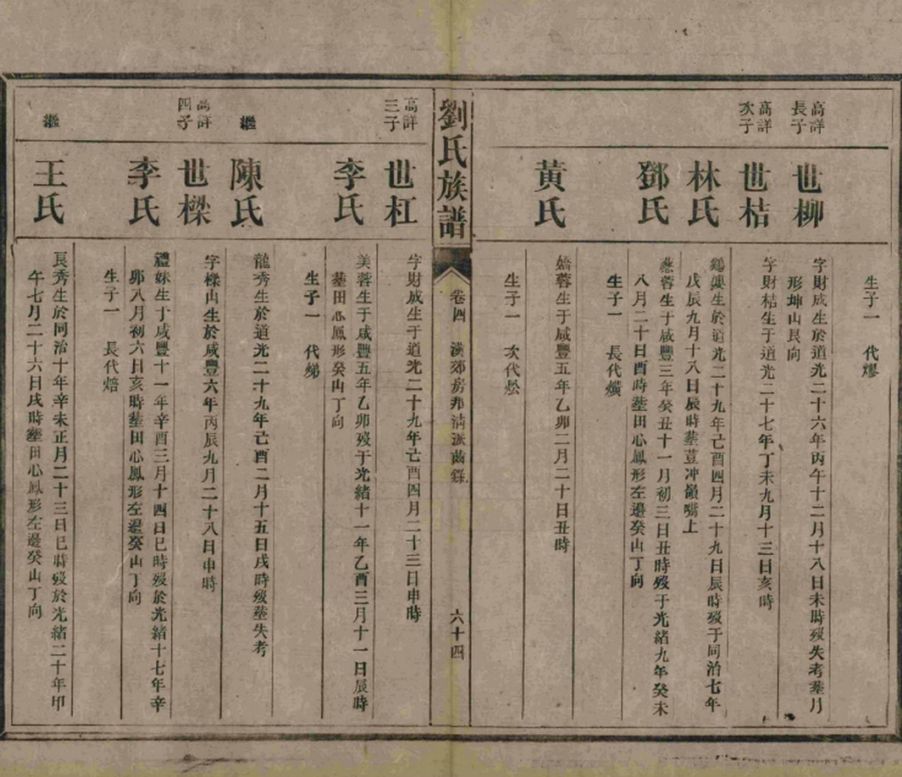 生子一　代熮
高祥長子
世柳
字財成生於道光二十六年丙午十二月十八日未時歿失考塟月
形坤山艮向
高祥次子
世桔
字財桔生于道光二十七年丁未九月十三日亥時
林氏
生於道光二十九年己酉四月二十九日辰時歿于同治七年
戊辰九月十八日辰時塟荳冲嶺嘴上
鄧氏
蓉生于咸豐三年癸丑十一月初三日丑時歿于光緒九年癸未
八月二十日酉時塟田心鳳形左邊癸山丁向
生子一　長代熿
黃氏
嬌蓉生于咸豐五年乙卯二月二十日丑時
生子一　次代炂
劉氏族譜
卷四　房邦清派齒錄
六十四
高祥三子
世杠
字財成生于道光二十九年己酉四月二十三日申時
李氏
美蓉生于咸豐五年乙卯歿于光緒十一年乙酉三月十一日辰時
塟田心鳳形癸山丁向
生子一　代
繼
陳氏
龍秀生於道光二十九年己酉二月十五日戌時歿塟失考
高祥四子
世樑
字樑山生於咸豐六年丙辰九月二十八日申時
李氏
禮妹生于咸豐十一年辛酉三月十四日巳時歿於光緒十七年辛
卯八月初六日亥時塟田心鳳形左邊癸山丁向
生子一　長代焙
繼
王氏
長秀生於同治十年辛未正月二十三日巳時歿於光緒二十年甲
午七月二十六日戌時塟田心鳳形左邊癸山丁向